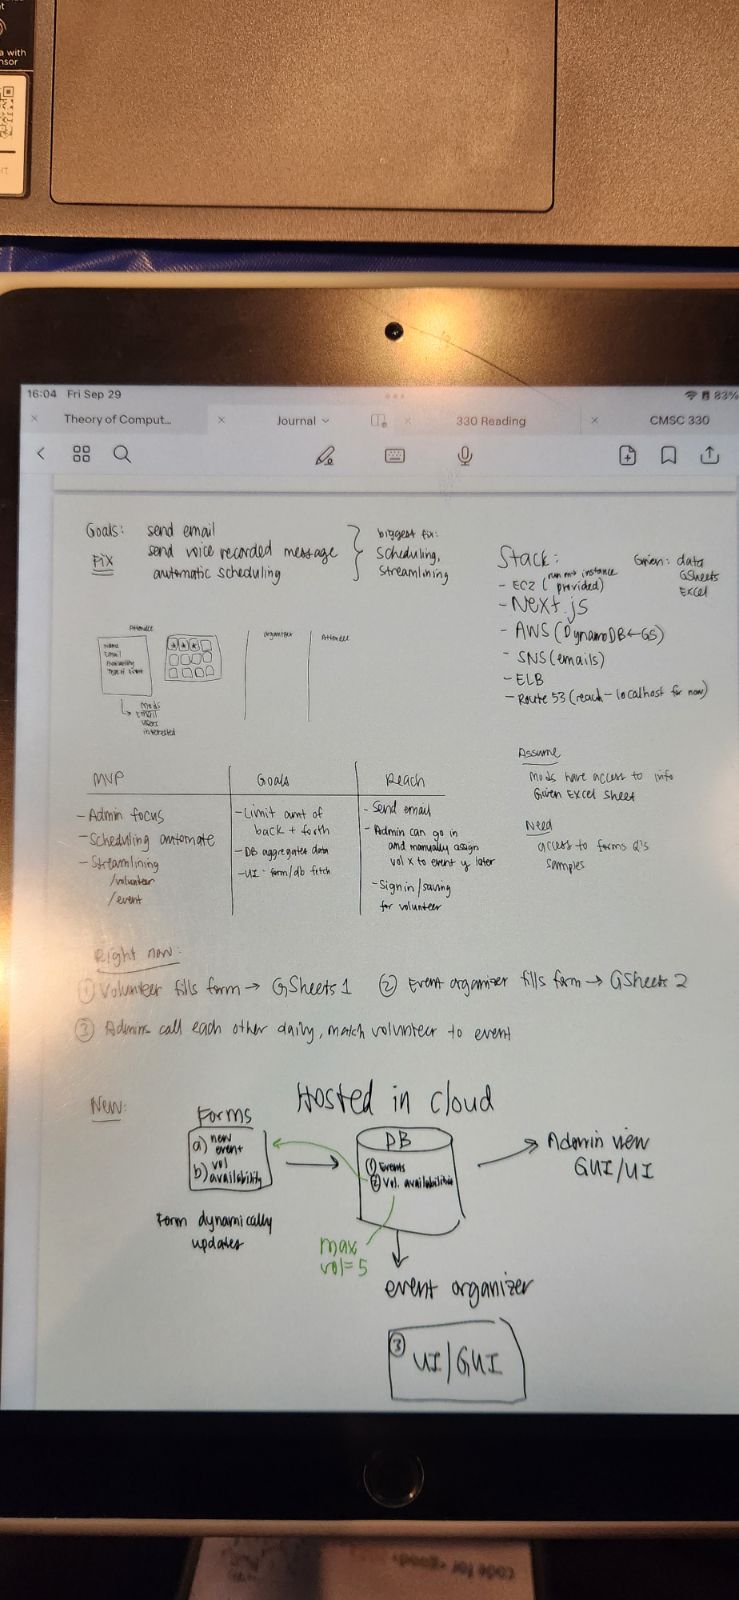 a with
nsor
16:04 Fri Sep 29
83%
Theory of Comput...
Journal
330 Reading
CMSC 330
Goals: send email
send voice recorded message
automatic scheduling
Fix
biggest fix:
scheduling,
streamlining
Stack:
- EC2 (run instance provided)
- Next.js
- AWS (DynamoDB ← GS)
- SNS (emails)
- ELB
- Route 53 (reach - localhost for now)
Given: data
GSheets
Excel
Attendee
Name
Email
Type of event
↳ Mods
Email
users
interested
organizer
Attendee
MVP
- Admin focus
- Scheduling automate
- Streamlining
/volunteer
/event
Goals
- Limit amt of
back + forth
- DB aggregates data
- UI - form/db fetch
Reach
- Send email
- Admin can go in
and manually assign
vol x to event y later
- Sign in/saving
for volunteer
Assume
Mods have access to info
Given Excel sheet
Need
access to forms Q's
samples
Right now:
① Volunteer fills form → GSheets 1 ② Event organizer fills form → GSheets 2
③ Admins call each other daily, match volunteer to event
New:
Hosted in cloud
Forms
a) new
event
b) vol
availability
Form dynamically
updates
DB
① Events
② Vol. availabilities
max
vol=5
Admin view
GUI/UI
event organizer
③ UI/GUI
code for <good>